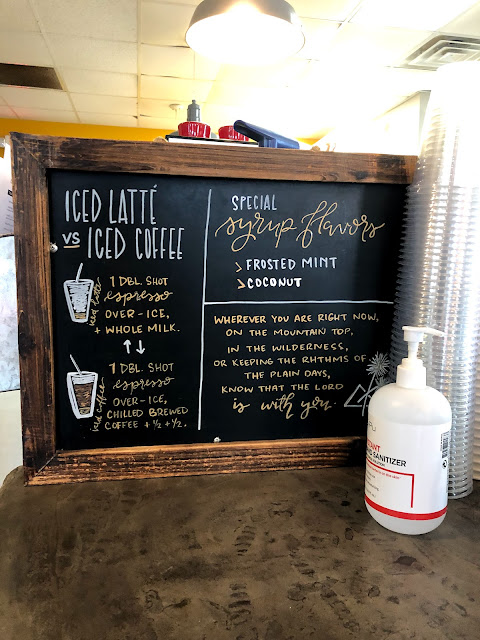 ICED LATTÉ
VS ICED COFFEE
1 DBL. SHOT
espresso
OVER-ICE,
+ WHOLE MILK.
iced latte
1 DBL. SHOT
espresso
OVER-ICE,
CHILLED BREWED
COFFEE + ½ + ½.
iced coffee
SPECIAL
syrup flavors
> FROSTED MINT
> COCONUT
WHEREVER YOU ARE RIGHT NOW,
ON THE MOUNTAIN TOP,
IN THE WILDERNESS,
OR KEEPING THE RHTHMS OF
THE PLAIN DAYS,
KNOW THAT THE LORD
is with you.
SANITIZER